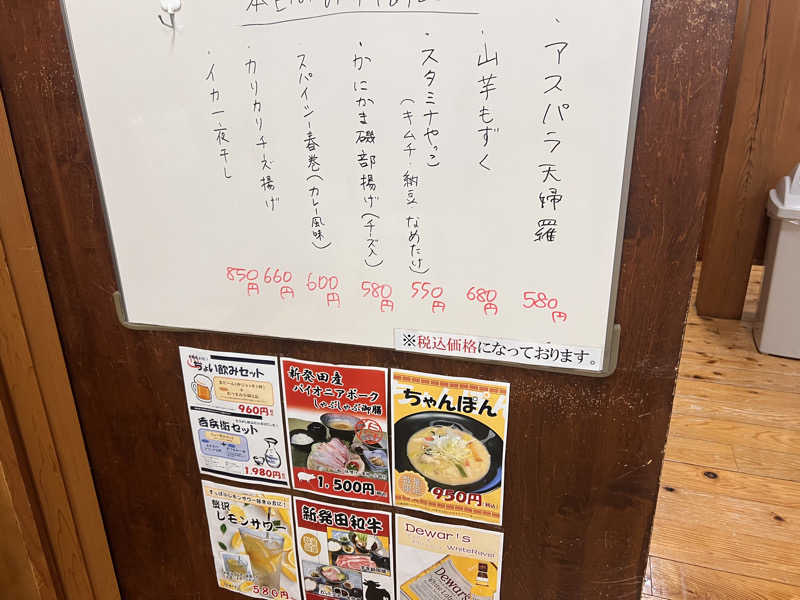 ・アスパラ天婦羅
580円
・山芋もずく
680円
・スタミナやっこ
(キムチ・納豆・なめたけ)
550円
・かにかま磯部揚げ(チーズ入)
580円
・スパイシー春巻(カレー風味)
600円
・カリカリチーズ揚げ
660円
・イカ一夜干し
850円
※税込価格になっております。
ちょい飲みセット
960円
呑兵衛セット
1,980円
新発田産
パイオニアポーク
しゃぶしゃぶ御膳
1,500円
ちゃんぽん
950円
贅沢
レモンサワー
580円
新発田和牛
Dewar's
WhiteRavel